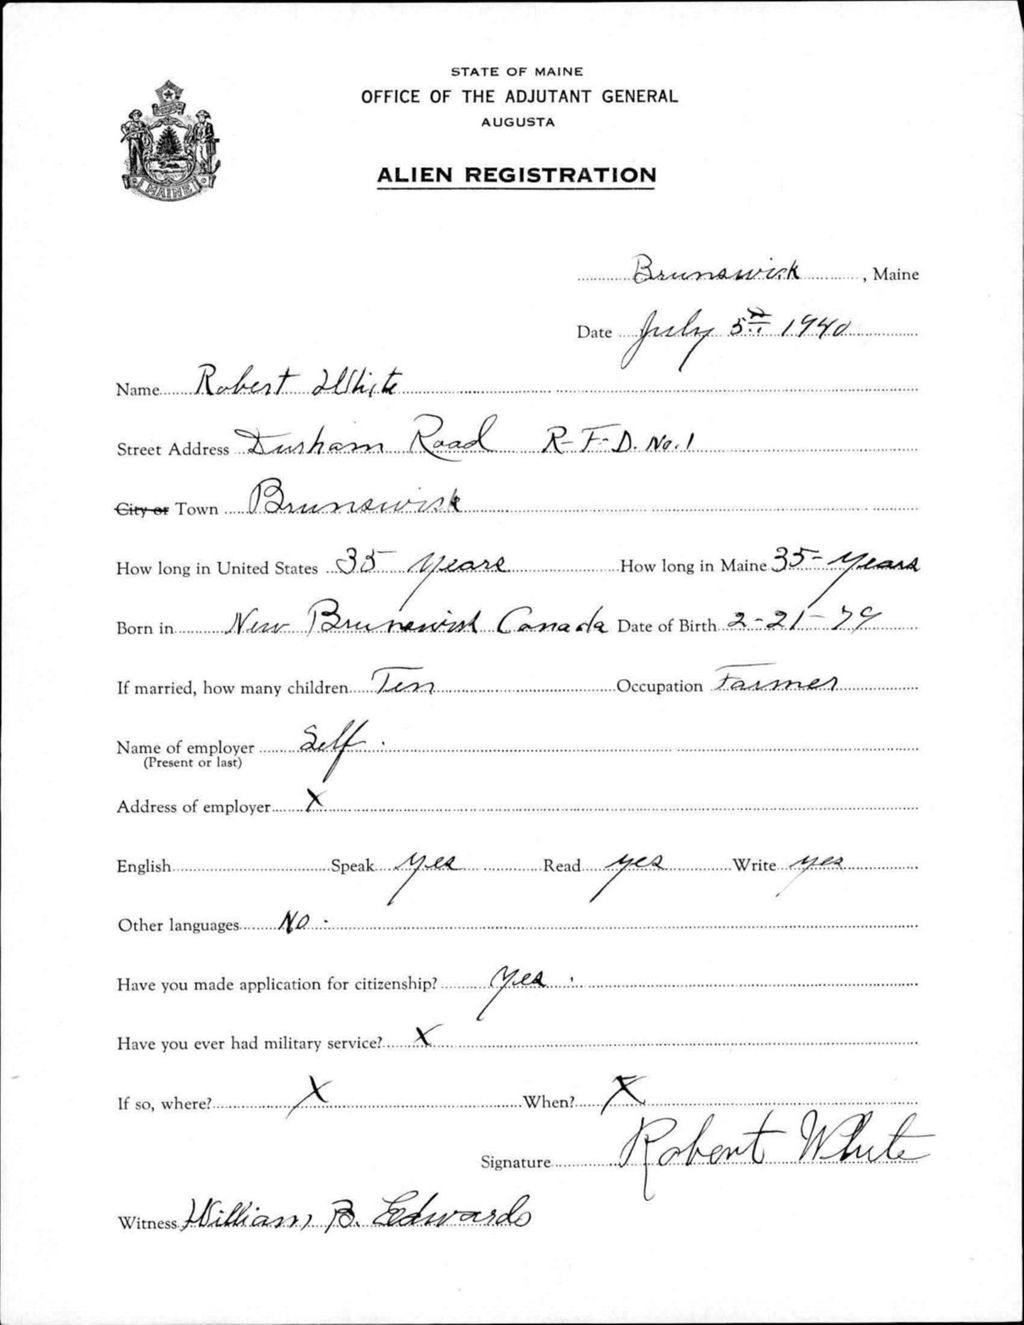 STATE OF MAINE
OFFICE OF THE ADJUTANT GENERAL
AUGUSTA
ALIEN REGISTRATION
MAINE
Brunswick, Maine
Date July 5th 1940
Name Robert White
Street Address Durham Road R-F-D. No. 1
City or Town Brunswick
How long in United States 35 years How long in Maine 35 years
Born in New Brunswick Canada Date of Birth 2-21-79
If married, how many children Ten Occupation Farmer
Name of employer Self.
(Present or last)
Address of employer X
English Speak yes Read yes Write yes
Other languages No.
Have you made application for citizenship? Yes.
Have you ever had military service? X
If so, where? X When? X
Signature Robert White
Witness William B. Edwards